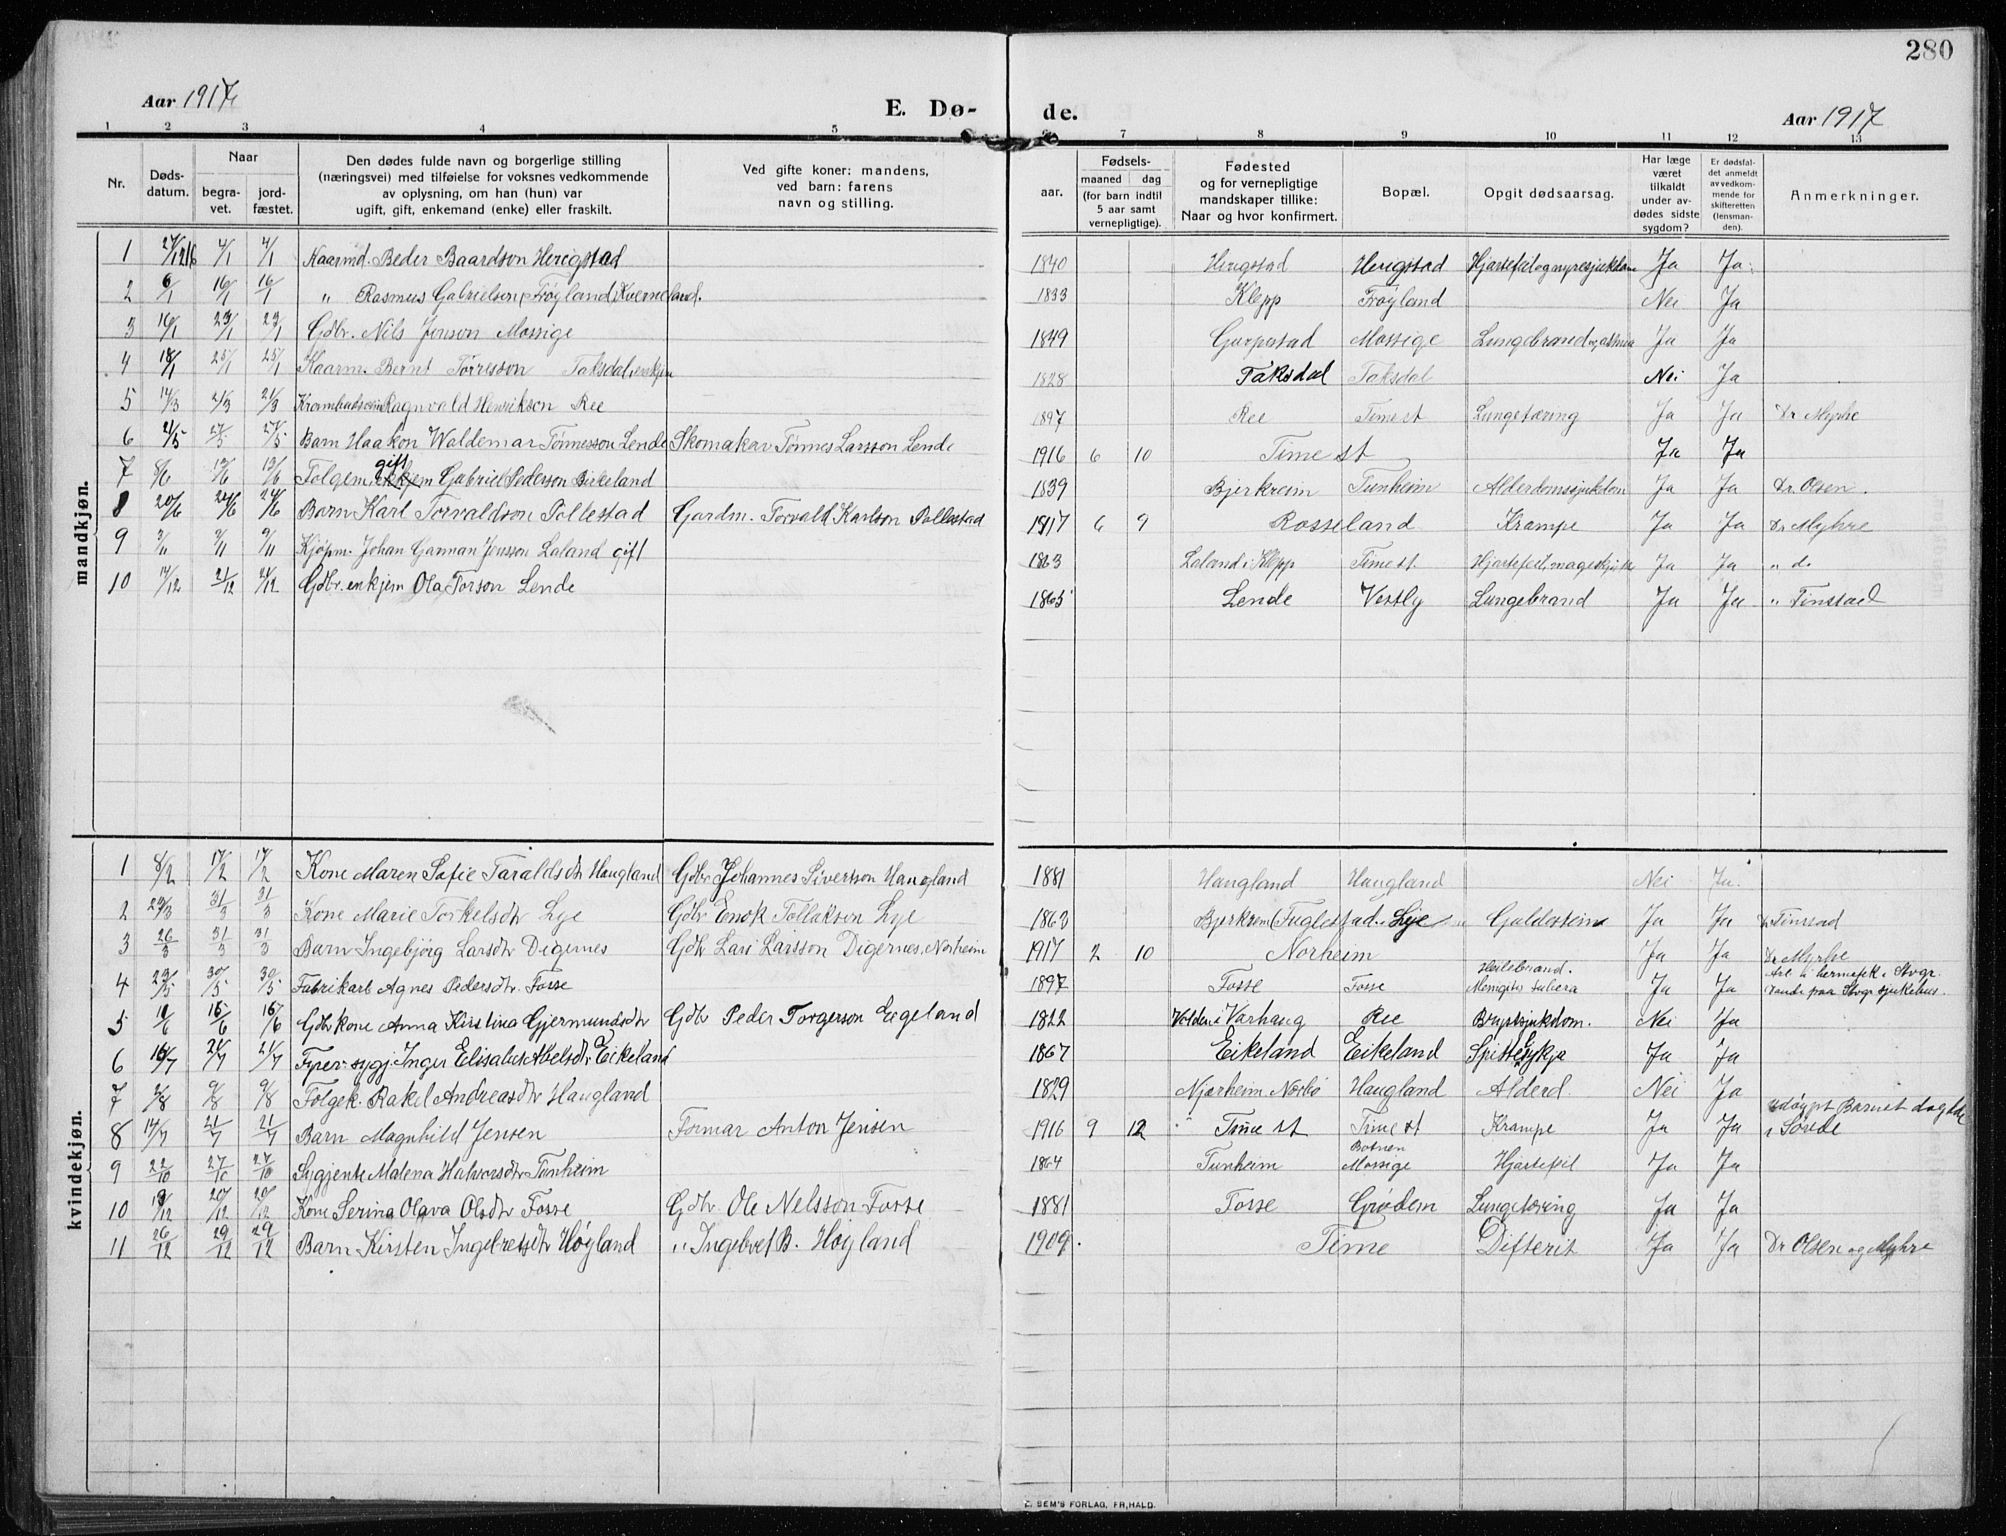 280
Aar 1917
E. Dø-
de.
Aar 1917
1 2 3 4 5 6 7 8 9 10 11 12 13
Nr.
Døds-
datum.
Naar
begra-
vet.
jord-
fæstet.
Den dødes fulde navn og borgerlige stilling
(næringsvei) med tilføielse for voksnes vedkommende
av oplysning, om han (hun) var
ugift, gift, enkemand (enke) eller fraskilt.
Ved gifte koner: mandens,
ved barn: farens
navn og stilling.
aar.
Fødsels-
maaned dag
(for barn indtil
5 aar samt
vernepligtige).
Fødested
og for vernepligtige
mandskaper tillike:
Naar og hvor konfirmert.
Bopæl.
Opgit dødsaarsag.
Har læge
været
tilkaldt
under av-
dødes sidste
sygdom?
Er dødsfal-
det anmeldt
av vedkom-
mende for
skifteretten
(lensman-
den).
Anmerkninger.
mandkjøn.
1 27/12 16 4/1 4/1 Kaarmd. Beder Baardson Herigstad 1840 Herigstad Herigstad Hjartefeil og nyresjukdom Ja Ja
2 6/1 16/1 16/1 " Rasmus Gabrielsen Frøyland, Kverneland. 1833 Klepp Frøyland Nei Ja
3 16/1 23/1 23/1 Gdbr. Nils Jonson Mossige 1849 Gurpestad Mossige Lungebrand og Ja Ja
4 18/1 25/1 25/1 Kaarm. Bernt Tørresson Taksdal, enkjem 1828 Taksdal Taksdal Nei Ja
5 14/3 21/3 21/3 Ragnvald Henrikson Ree 1897 Ree Time st Lungetæring Ja Ja Dr Myhre
6 21/5 27/5 27/5 Barn Haakon Waldemar Tønnesson Lende Skomakar Tønnes Larsson Lende 1916 6 10 Time st Ja Ja
gift
7 8/6 13/6 13/6 Folgem. enkjem Gabriel Pederson Birkeland 1839 Bjerkreim Tunheim Alderdomssjukdom Ja Ja Dr. Olsen.
8 20/6 24/6 24/6 Barn Karl Torvaldson Pollestad Gardm. Torvald Karlson Pollestad 1917 6 9 Rosseland Krampe Ja Ja Dr Myhre
9 3/11 9/11 9/11 Kjøpm. Johan Garman Jensson Laland gift 1863 Laland i Klepp Time st. Hjartefeil, Ja Ja " do
10 14/12 21/12 21/12 Gdbr. enkjem Ola Torson Lende 1865 Lende Vestly Lungebrand Ja Ja " Tinstad
kvindekjøn.
1 8/2 17/2 17/2 Kone Maren Sofie Taraldsdtr Haugland Gdbr Johannes Sivertson Haugland 1881 Haugland Haugland Nei Ja
2 23/3 31/3 31/3 Kone Marie Torkelsdtr Lye Gdbr Enok Tollakson Lye 1863 Bjerkrem (Fuglestad) Lye Galdestein Ja Ja Dr Tinstad
3 26/3 31/3 31/3 Barn Ingebjørg Larsdtr Digernes Gdbr Lars Larsson Digernes, Norheim 1917 2 10 Norheim Ja Ja Dr Myhre
4 23/5 30/5 30/5 Fabrikarb Agnes Pedersdtr. Fosse 1897 Fosse Fosse Ja Ja Arb. i hermefek. i Stvgr.
Døde paa Stvgr sjukehus.
5 10/6 16/6 16/6 Gdbrkone Anna Kirstina Gjermundsdtr Gdbr Peder Torgerson Eigeland 1822 Varhaug Ree Brystsjukdom. Nei Ja
6 16/7 21/7 21/7 Inger Elisabet Abelsdtr Eikeland 1867 Eikeland Eikeland Ja Ja
7 2/8 9/8 9/8 Folgek. Rakel Andreasdtr Haugland 1829 Njærheim Nærbø Haugland Alderd. Nei Ja
8 14/7 21/7 21/7 Barn Magnhild Jensen Formar Anton Jensen 1916 9 12 Time st Time st Krampe Ja Ja Udøypt Barnet
9 22/10 27/10 27/10 Sygjente Malena Halvorsdtr Tunheim 1864 Tunheim Mossige Hjartefeil Ja Ja
10 13/12 20/12 20/12 Kone Serina Olava Olsdtr Fosse Gdbr. Ole Nelsson Fosse 1881 Fosse Grødem Lungetæring Ja Ja
11 26/12 29/12 29/12 Barn Kirsten Ingebretsdtr Høyland " Ingebret B. Høyland 1909. Time Difterit Ja Ja Dr Olsen og Myhre
E. SEM'S FORLAG, FR,HALD.